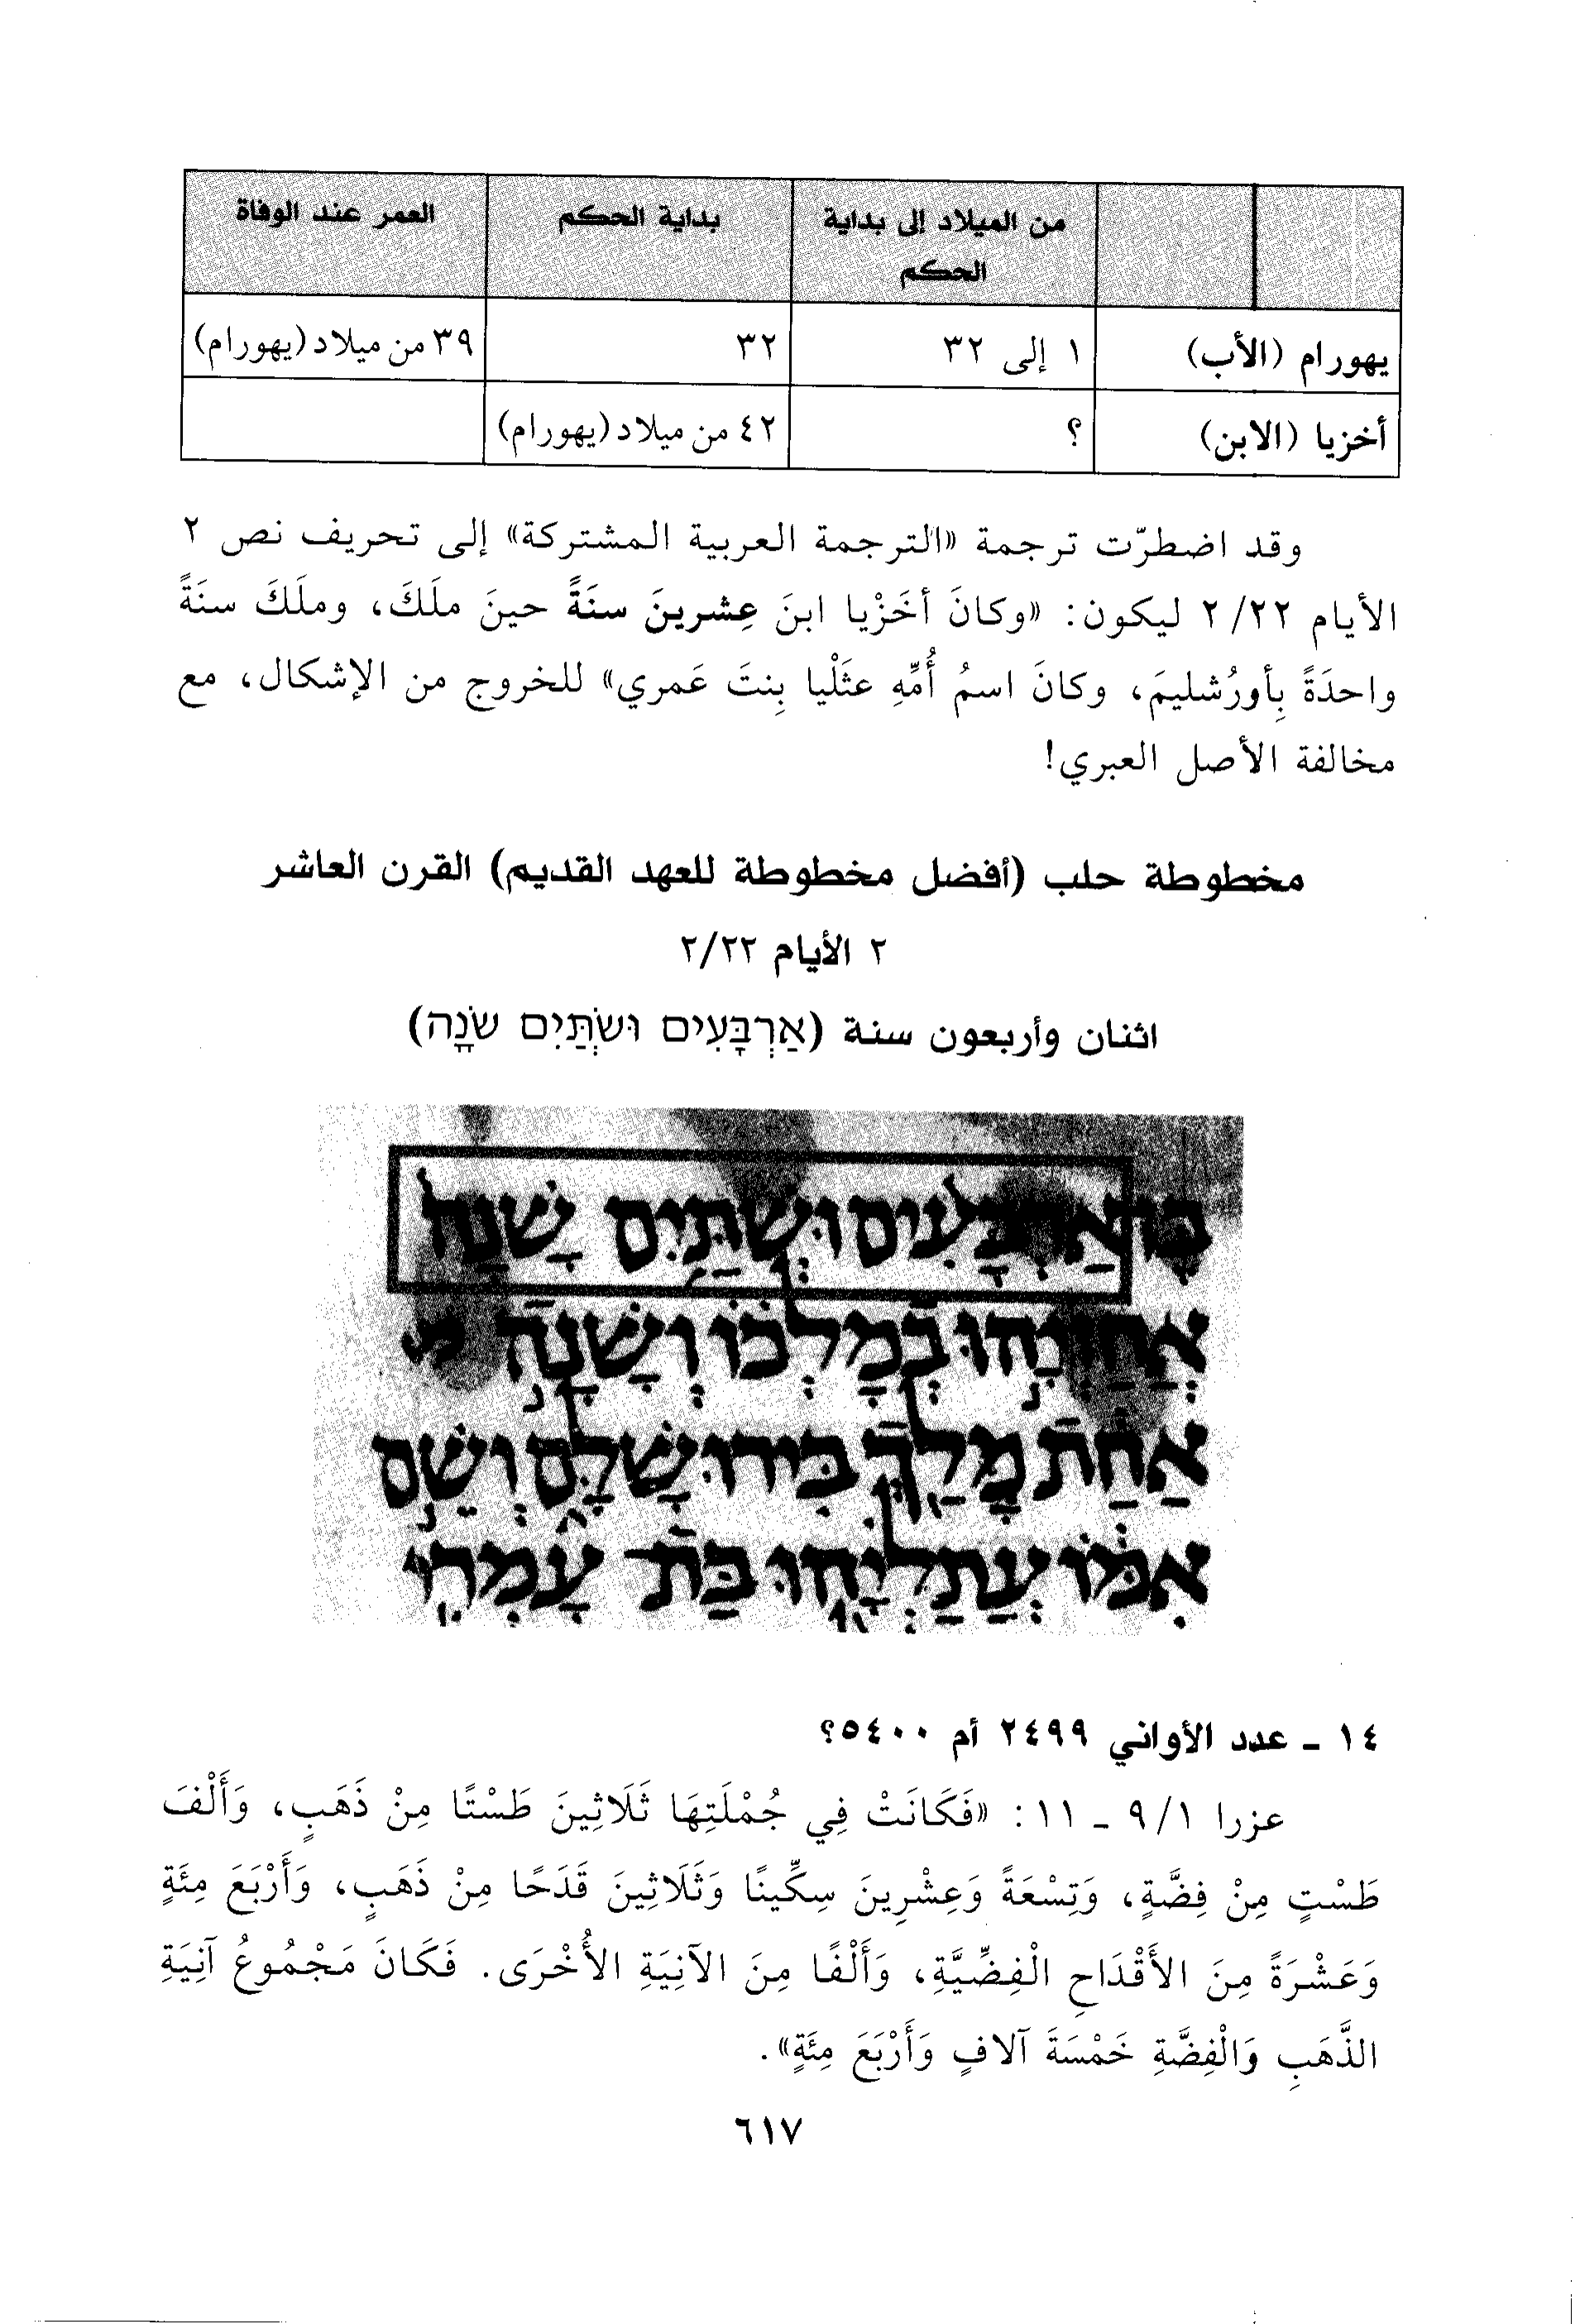 من الميلاد إلى بداية الحكم | بداية الحكم | العمر عند الوفاة
يهورام (الأب) | ١ إلى ٣٢ | ٣٢ | ٣٩ من ميلاد (يهورام)
أخزيا (الابن) | ؟ | ٤٢ من ميلاد (يهورام)
وقد اضطرّت ترجمة «الترجمة العربية المشتركة» إلى تحريف نص ٢
الأيام ٢/٢٢ ليكون: «وكانَ أخَزْيا ابنَ عِشرينَ سنَةً حينَ ملَكَ، وملَكَ سنَةً
واحدَةً بِأورُشليمَ، وكانَ اسمُ أُمِّهِ عثَلْيا بِنتَ عَمري» للخروج من الإشكال، مع
مخالفة الأصل العبري!
مخطوطة حلب (أفضل مخطوطة للعهد القديم) القرن العاشر
٢ الأيام ٢/٢٢
اثنان وأربعون سنة (אַרְבָּעִים וּשְׁתַּיִם שׁנָה)
בֶּן אַרְבָּעִים וּשְׁתַּיִם שָׁנָה
אֲחַזְיָהוּ בְמָלְכוֹ וְשָׁנָה
אַחַת מָלַךְ בִּירוּשָׁלָם וְשֵׁם
אִמּוֹ עֲתַלְיָהוּ בַּת עָמְרִי
١٤ - عدد الأواني ٢٤٩٩ أم ٥٤٠٠؟
عزرا ٩/١ - ١١: «فَكَانَتْ فِي جُمْلَتِهَا ثَلَاثِينَ طَسْتًا مِنْ ذَهَبٍ، وَأَلْفَ
طَسْتٍ مِنْ فِضَّةٍ، وَتِسْعَةً وَعِشْرِينَ سِكِّينًا وَثَلَاثِينَ قَدَحًا مِنْ ذَهَبٍ، وَأَرْبَعَ مِئَةٍ
وَعَشْرَةً مِنَ الأَقْدَاحِ الْفِضِّيَّةِ، وَأَلْفًا مِنَ الآنِيَةِ الأُخْرَى. فَكَانَ مَجْمُوعُ آنِيَةِ
الذَّهَبِ وَالْفِضَّةِ خَمْسَةَ آلافٍ وَأَرْبَعَ مِئَةٍ».
٦١٧